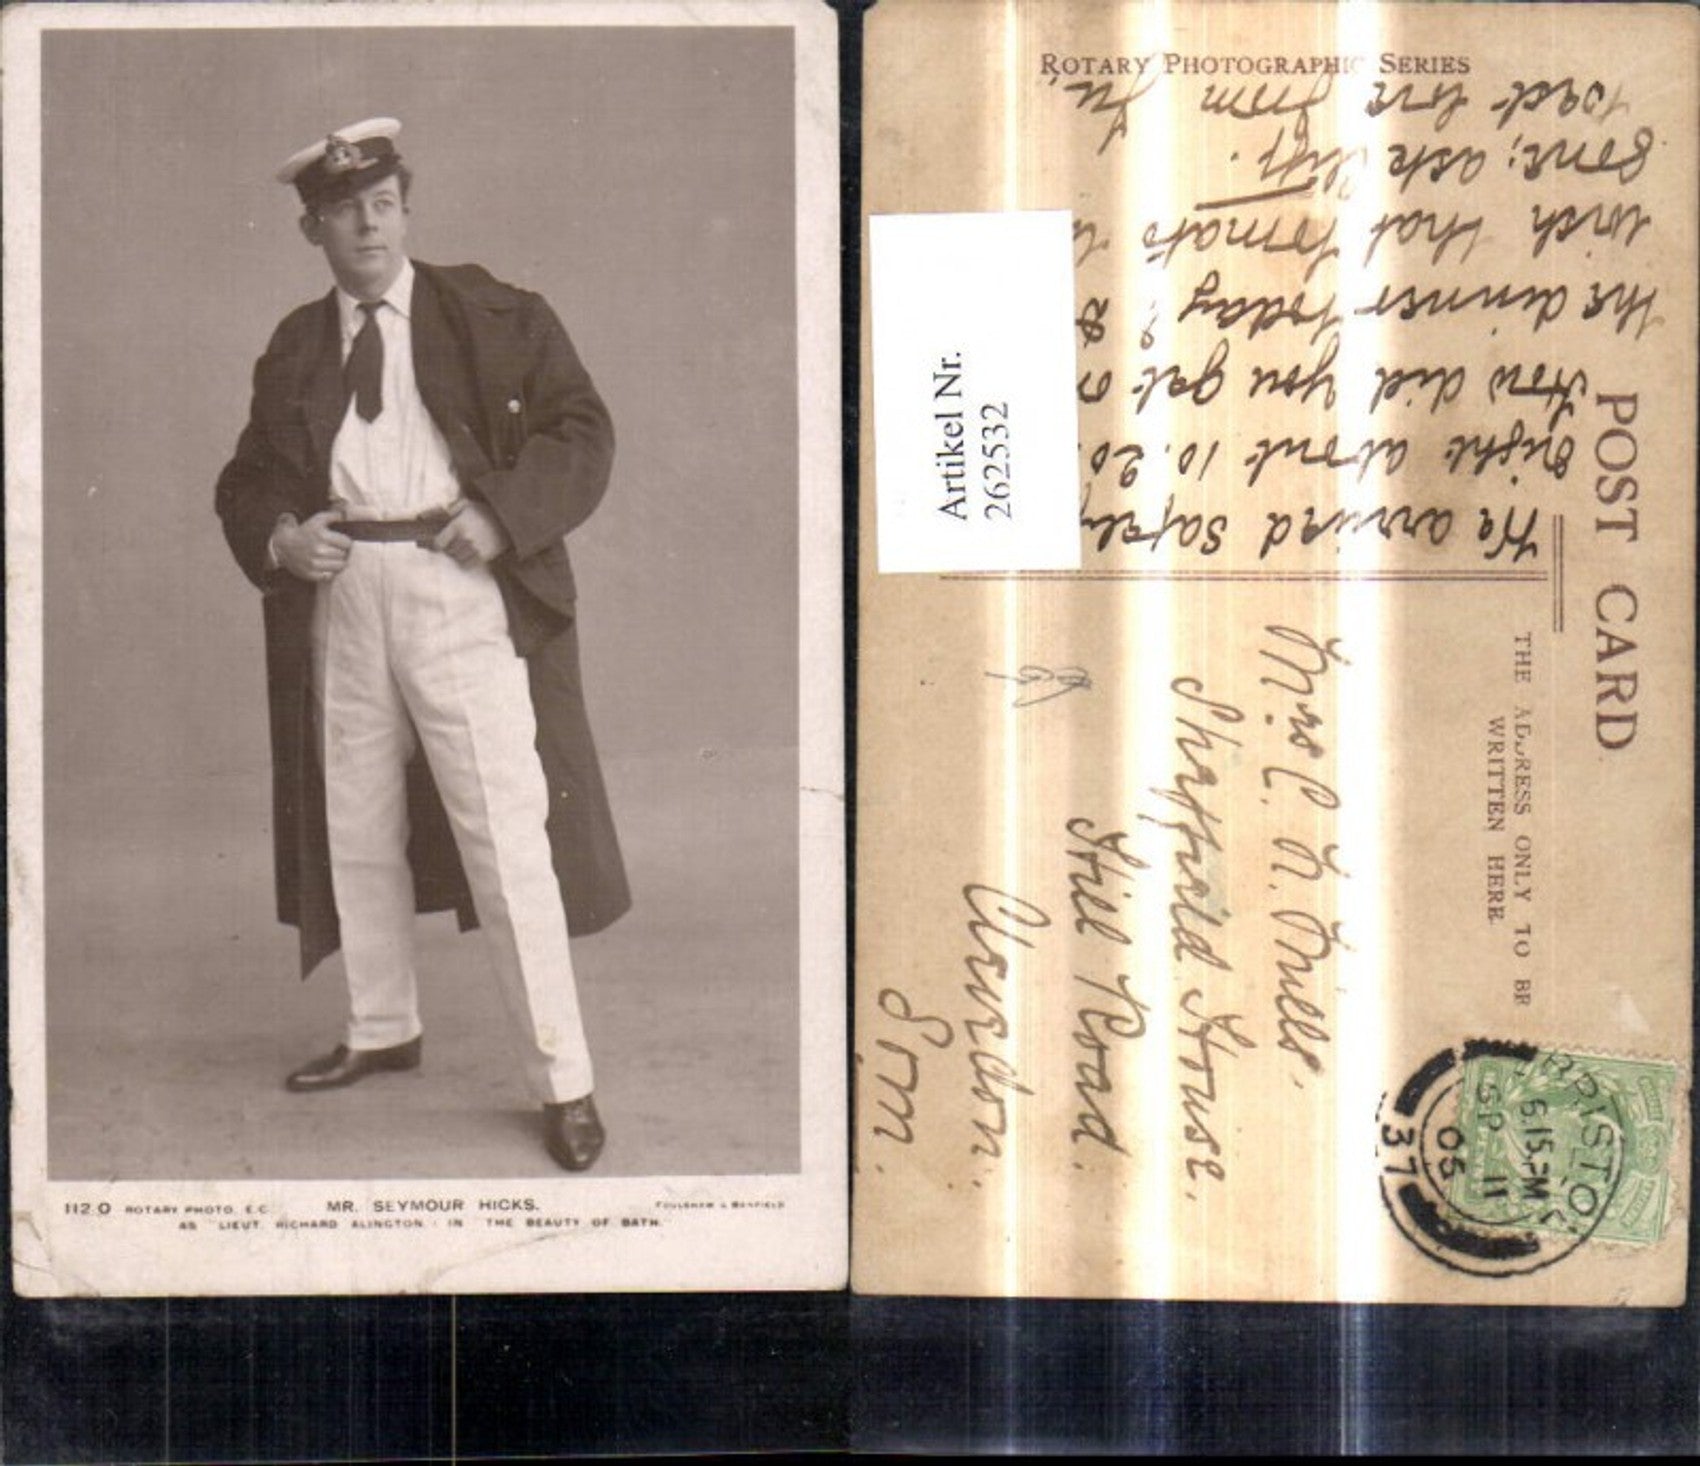 112 O ROTARY PHOTO. E.C. MR. SEYMOUR HICKS. FOULSHAM & BANFIELD
AS "LIEUT. RICHARD ALINGTON" IN "THE BEAUTY OF BATH."
ROTARY PHOTOGRAPHIC SERIES
POST CARD
THE ADDRESS ONLY TO BE
WRITTEN HERE.
Artikel Nr.
262532
We arrived safely
night about 10.20.
How did you get
the dinner today?
with that tomato
gone; ask
best love from
Mrs C. N. Mills.
Sheffield House.
Hill Road
Clevedon.
Som.
BRISTOL
6.15 PM
SP 11
05
37